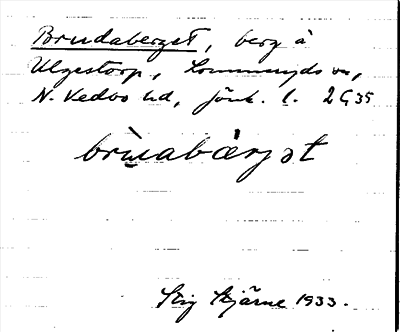 Brudaberget, berg å
Ulgestorp, Lommaryds sn,
N. Vedbo hd, Jönk. l. 2G35
brùɐabærjət
Stig Stjärne 1933.